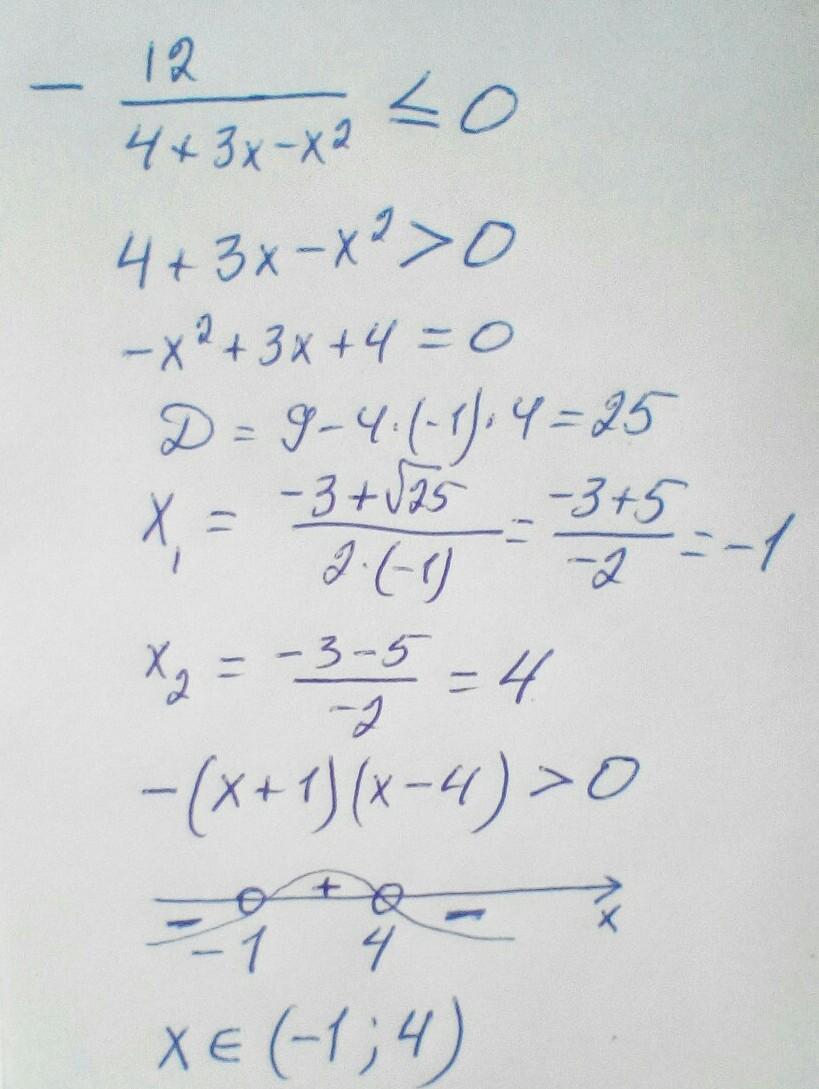 - 12/(4+3x-x²) ≤ 0
4+3x-x²>0
-x²+3x+4=0
D=9-4·(-1)·4=25
x₁ = (-3+√25)/(2·(-1)) = (-3+5)/(-2) = -1
x₂ = (-3-5)/(-2) = 4
-(x+1)(x-4)>0
- + - x
-1 4
x∈(-1;4)